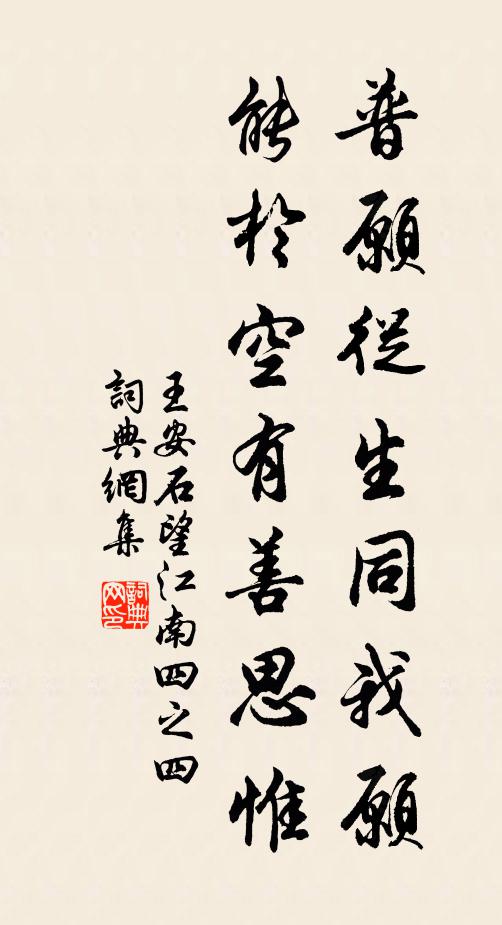 普願從生同我願
能於空有善思惟
王安石望江南四之四
詞典網集
詞典网印